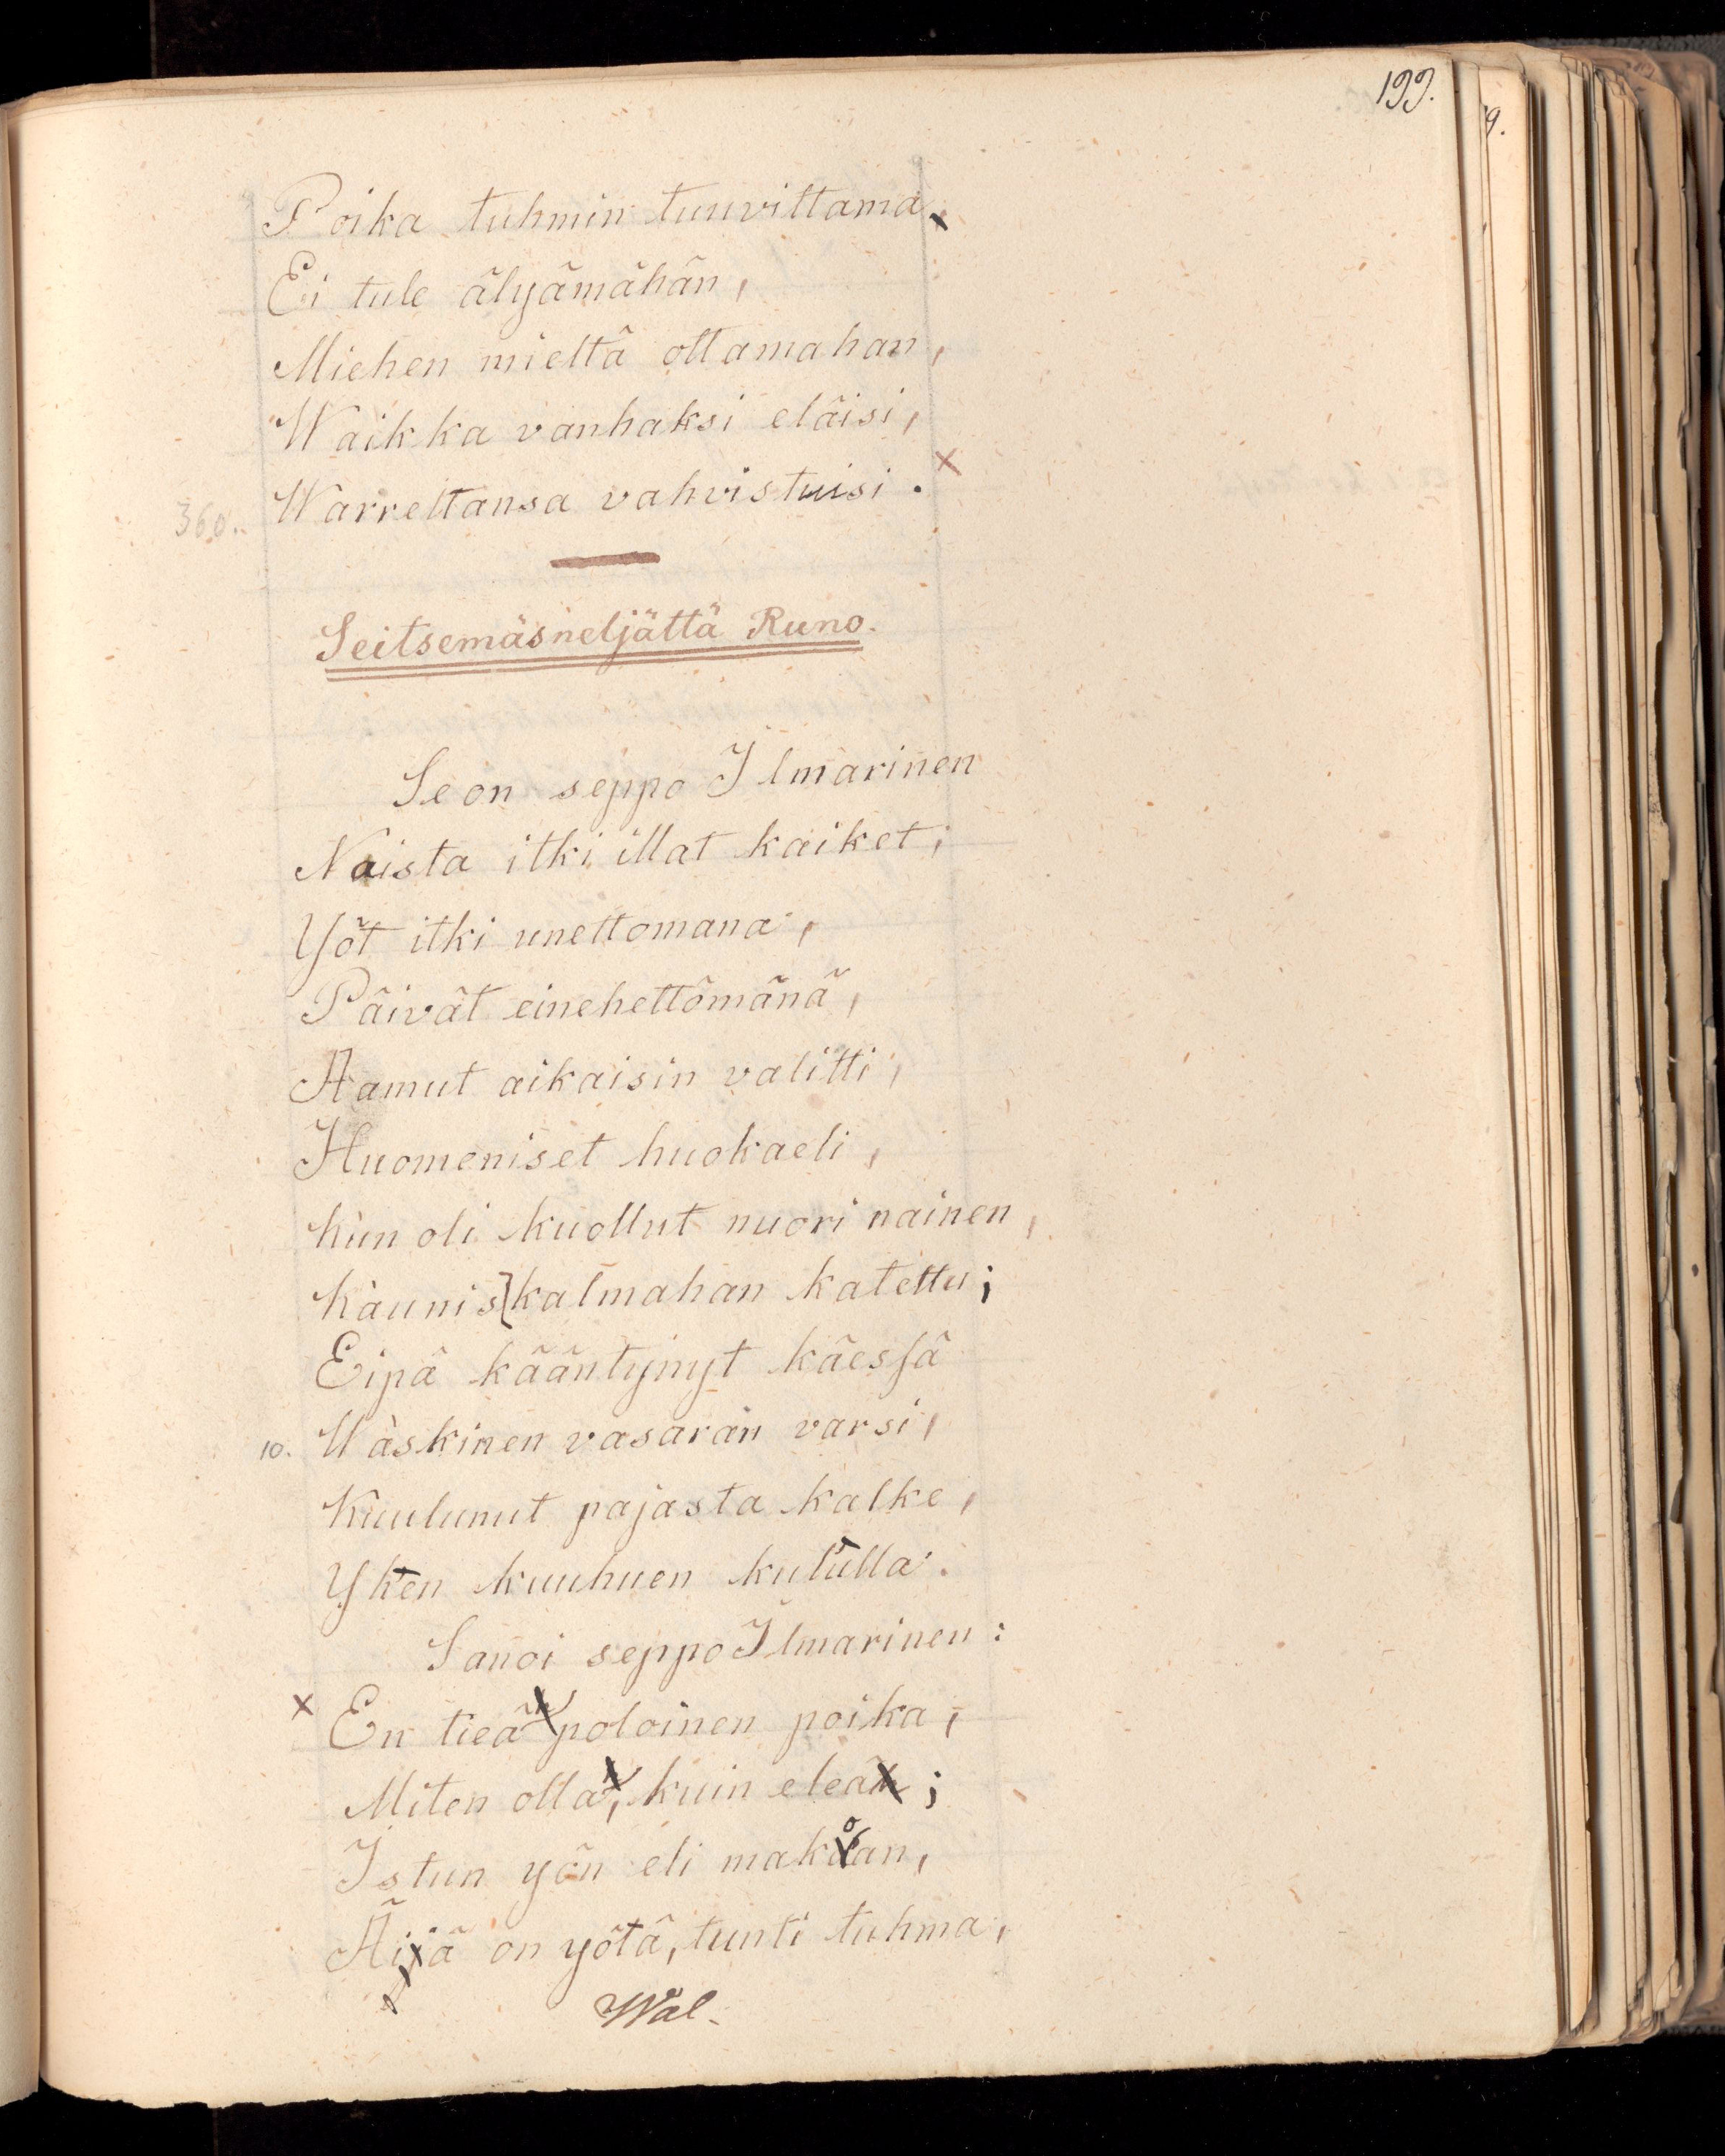 199.
9.
Poika tuhmin tuuvittama
Ei tule älyämähän,
Miehen mieltä ottamahan,
Waikka vanhaksi eläisi,
360. Warreltansa vahvistuisi.
Seitsemäsneljättä Runo.
Se on seppo Ilmarinen
Naista itki illat kaiket;
Yöt itki unettomana,
Päivät einehettömänä,
Aamut aikaisin valitti,
Huomeniset huokaeli,
Kun oli kuollut nuori nainen,
Kaunis kalmahan katettu;
Eipä kääntynyt käessä
10. Waskinen vasaran varsi,
Kuulunut pajasta kalke,
Yhen kuuhuen kululla.
Sanoi seppo Ilmarinen:
x En tieä poloinen poika,
Miten olla, kuin eleä;
Istun yön eli makoan,
Äijä on yötä, tunti tuhma,
Wal-